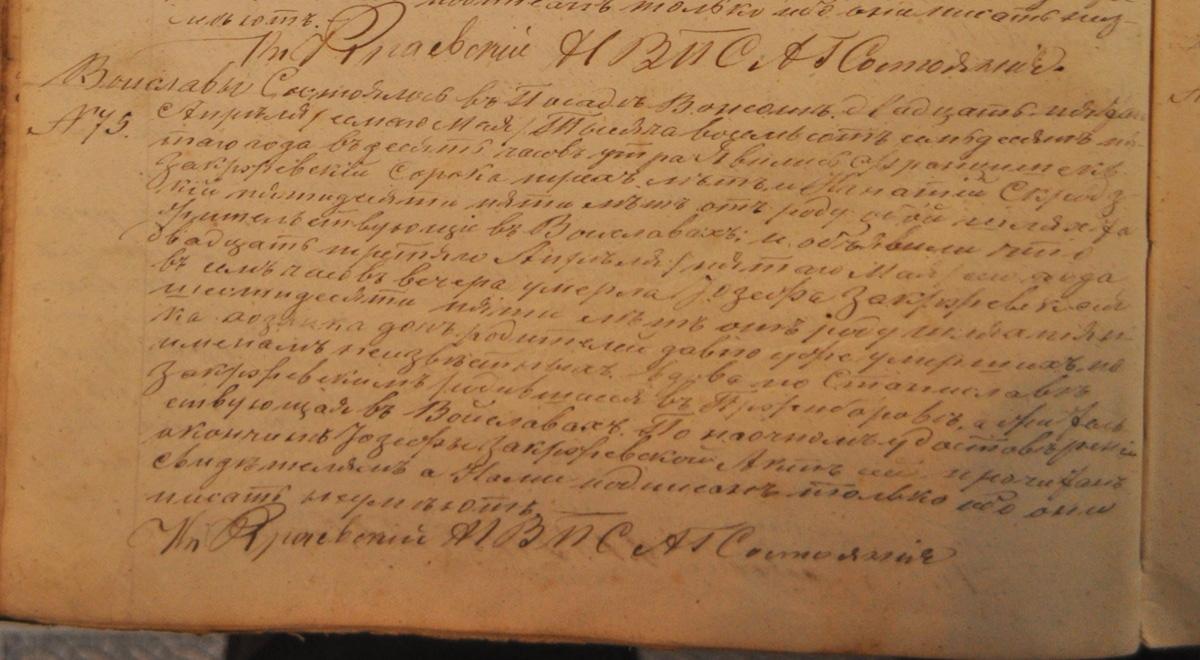 только ибо они писать неу-
мѣютъ.
Кс Краевскій Н В П С А Г Состоянія.
Воиславы Состоялось въ Посадѣ Воисомъ двадцать пят
№ 75. Апрѣля / семаго Мая / Тысяча восемьсотъ семьдесятъ пя-
таго года въ десять часовъ утра Явились Францишекъ
Закржевскій Сорока трехъ лѣтъ и Игнатій Скродз
кій пятидесяти пяти лѣтъ отъ роду оба
жительствующіе въ Воиславахъ; и объявили что
двадцать третяго Апрѣля / пятаго Мая / сего года
въ семь часовъ вечера умерла Іозефа Закржевская
шестидесяти пяти лѣтъ отъ роду
ка дочь родителей давно уже умершихъ по
именамъ неизвѣстныхъ вдова по Станиславѣ
Закржевскимъ родившаяся въ а житель
ствующая въ Войславахъ. По наочномъ удостовѣреніи
о кончинѣ Іозефы Закржевской Актъ сей прочитанъ
свидѣтелямъ а Нами подписанъ только ибо они
писать неумѣютъ.
Кс Краевскій Н В П С А Г Состоянія